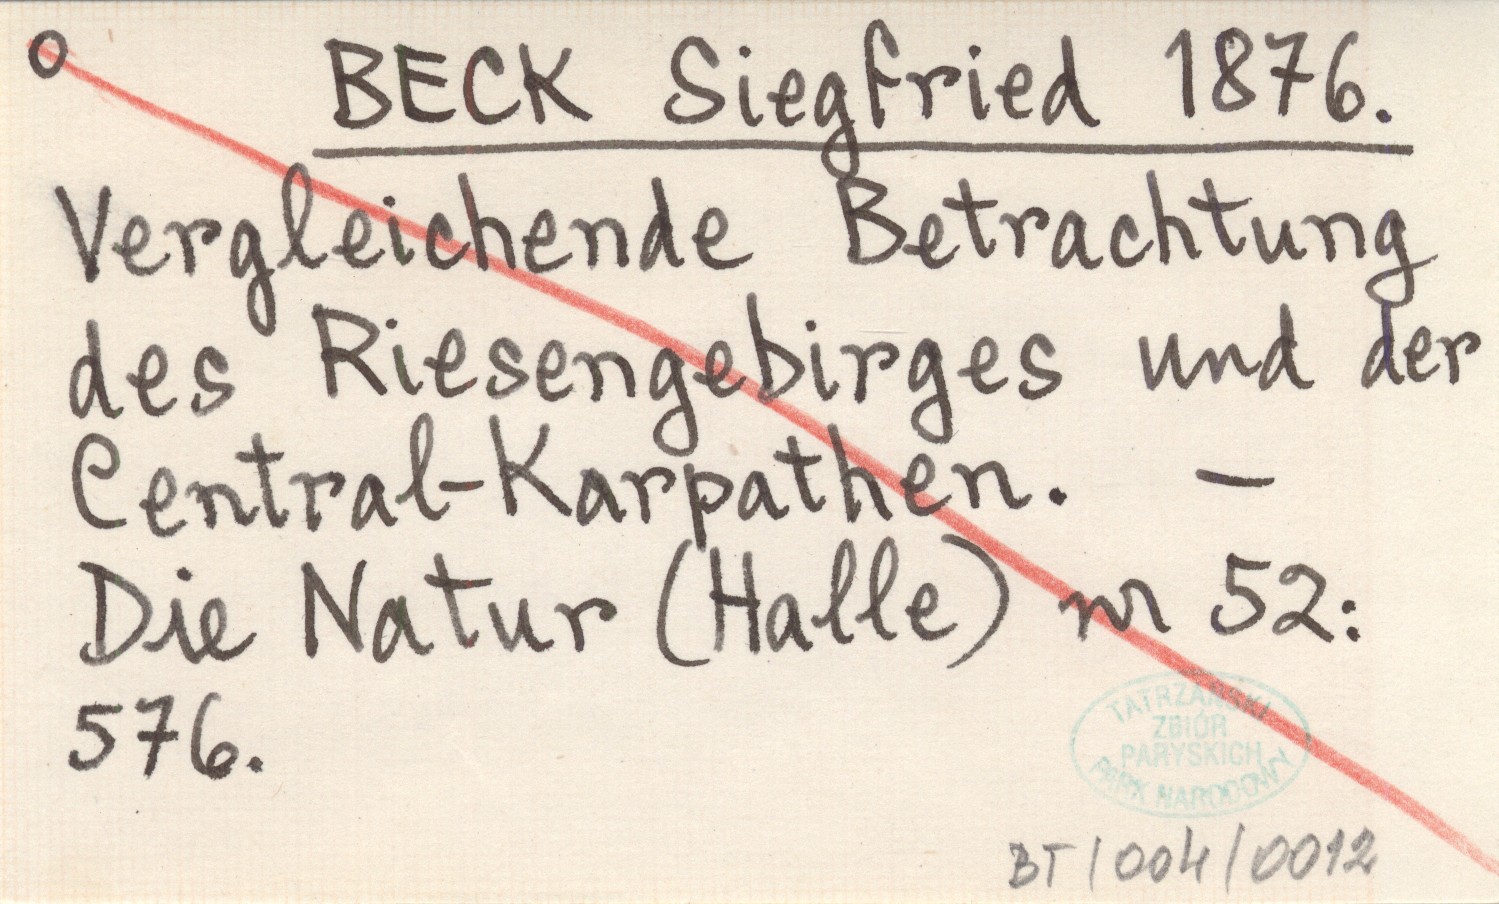 o BECK Siegfried 1876.
Vergleichende Betrachtung
des Riesengebirges und der
Central-Karpathen. –
Die Natur (Halle) nr 52:
576.
TATRZAŃSKI
ZBIÓR
PARYSKICH
PARK NARODOWY
BT/004/0012